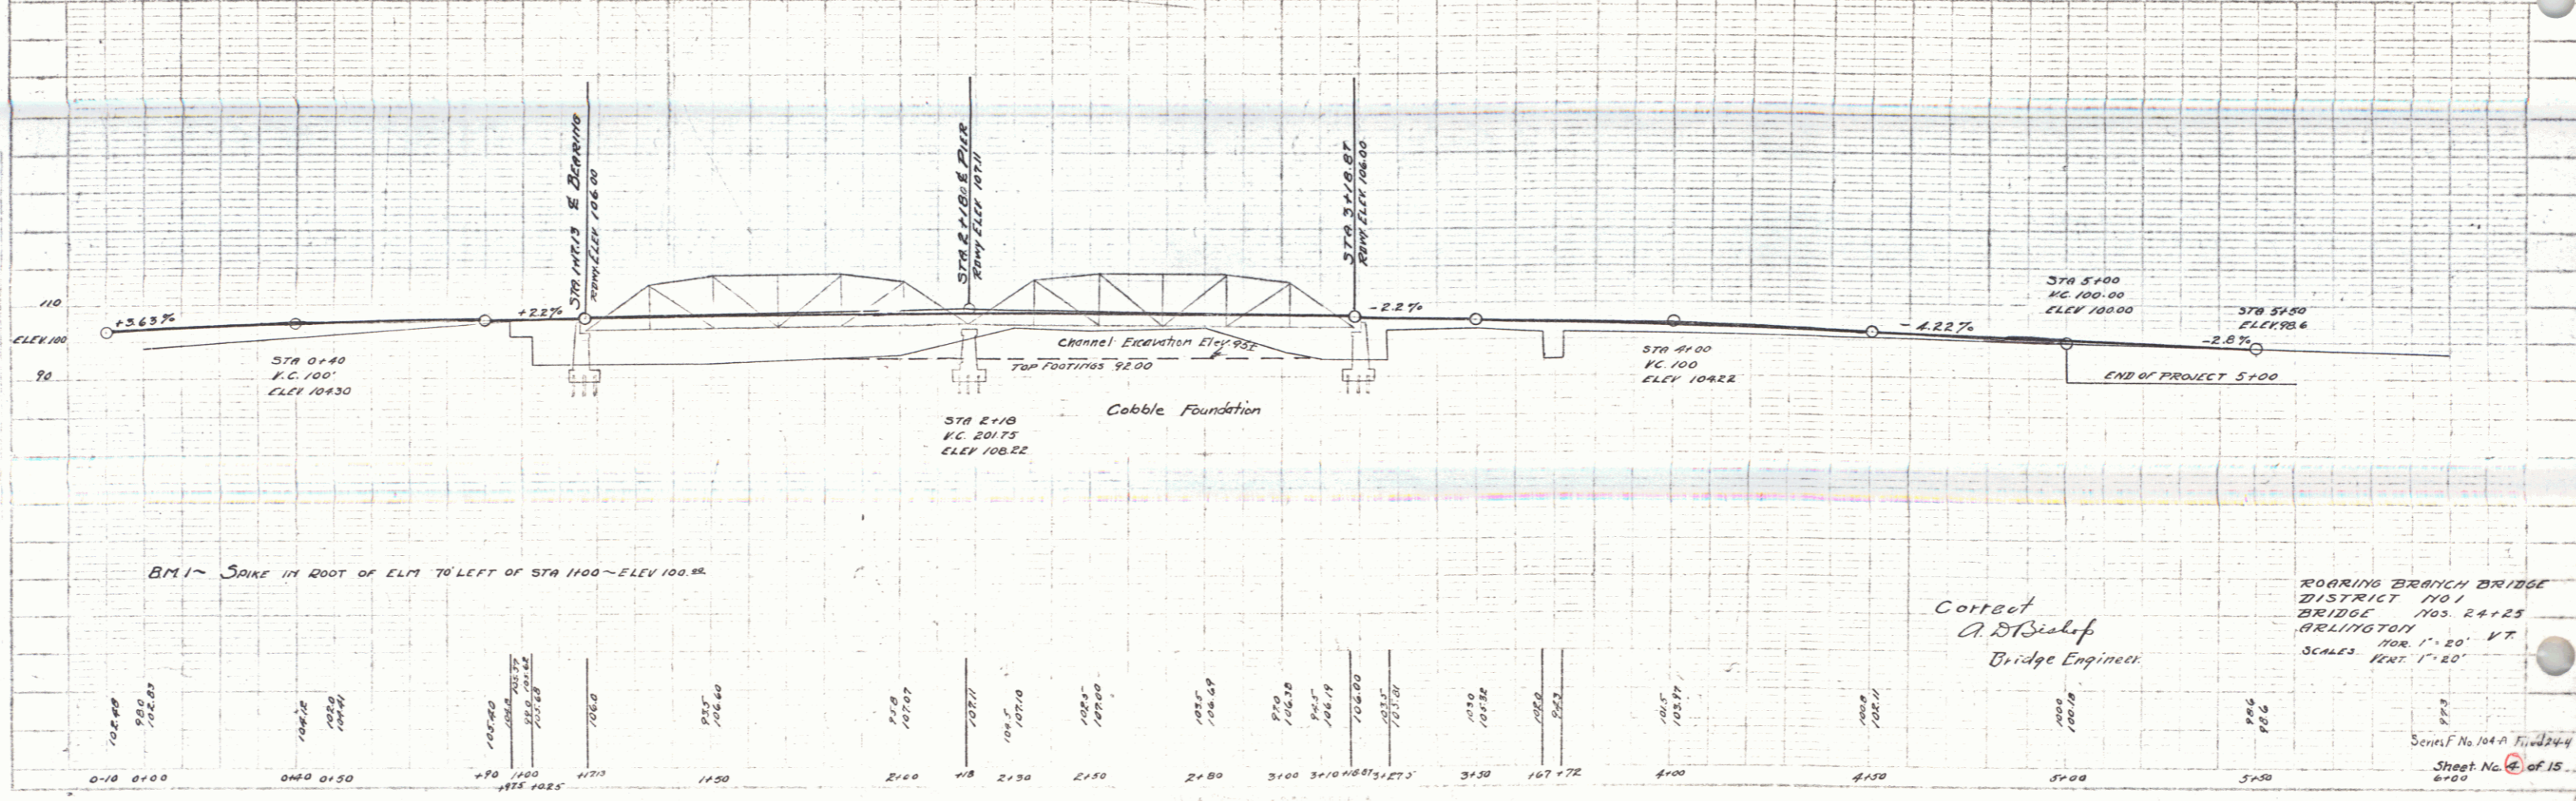 STA. 1+17.13 ℄ BEARING
RDWY. ELEV 106.00
STA. 2+18.0 ℄ PIER
RDWY ELEV 107.11
STA 3+18.87
RDWY ELEV 106.00
110
ELEV. 100
90
+3.63%
+2.2%
-2.2%
-4.22%
-2.8%
STA 0+40
V.C. 100'
ELEV 104.30
Channel Excavation Elev. 95±
TOP FOOTINGS 92.00
STA 2+18
V.C. 201.75
ELEV 108.22
Cobble Foundation
STA 4+00
V.C. 100
ELEV 104.22
STA 5+00
V.C. 100.00
ELEV 100.00
STA 5+50
ELEV. 98.6
END OF PROJECT 5+00
B.M. 1~ SPIKE IN ROOT OF ELM 70' LEFT OF STA 1+00~ELEV 100.00
Correct
A. D Bishop
Bridge Engineer.
ROARING BRANCH BRIDGE
DISTRICT NO 1
BRIDGE NOS. 24+25
ARLINGTON VT.
SCALES HOR. 1"=20'
VERT. 1"=20'
102.48
98.0
102.83
104.12
102.0
104.41
105.40
104.8
105.57
99.0
105.68
106.0
93.5
106.60
95.8
107.07
107.11
104.5
107.10
102.5
107.00
103.5
106.69
97.0
106.38
94.5
106.19
106.00
103.5
105.81
103.0
105.32
102.0
94.3
101.5
103.97
100.8
102.11
100.0
100.18
98.6
98.6
97.3
0-10 0+00 0+40 0+50 +90 1+00 +17.13 1+50 2+00 +18 2+30 2+50 2+80 3+00 3+10 +18.87 3+27.5 3+50 +67 +72 4+00 4+50 5+00 5+50 6+00
+97.5 +02.5
Series F No. 104-A
Sheet No. 4 of 15